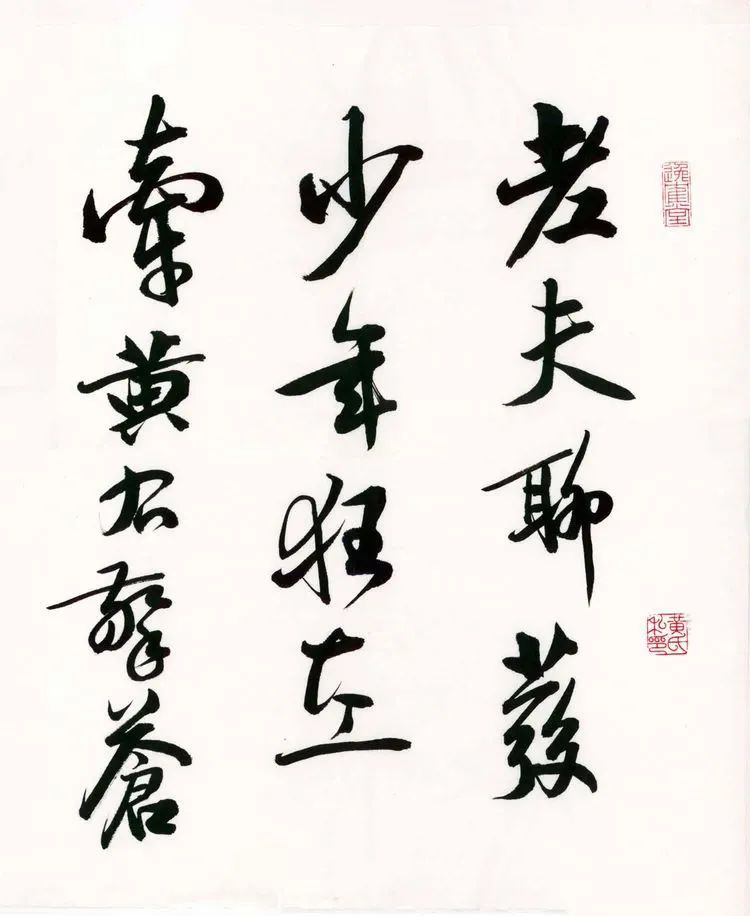 老夫聊發
少年狂左
牽黃右擎蒼